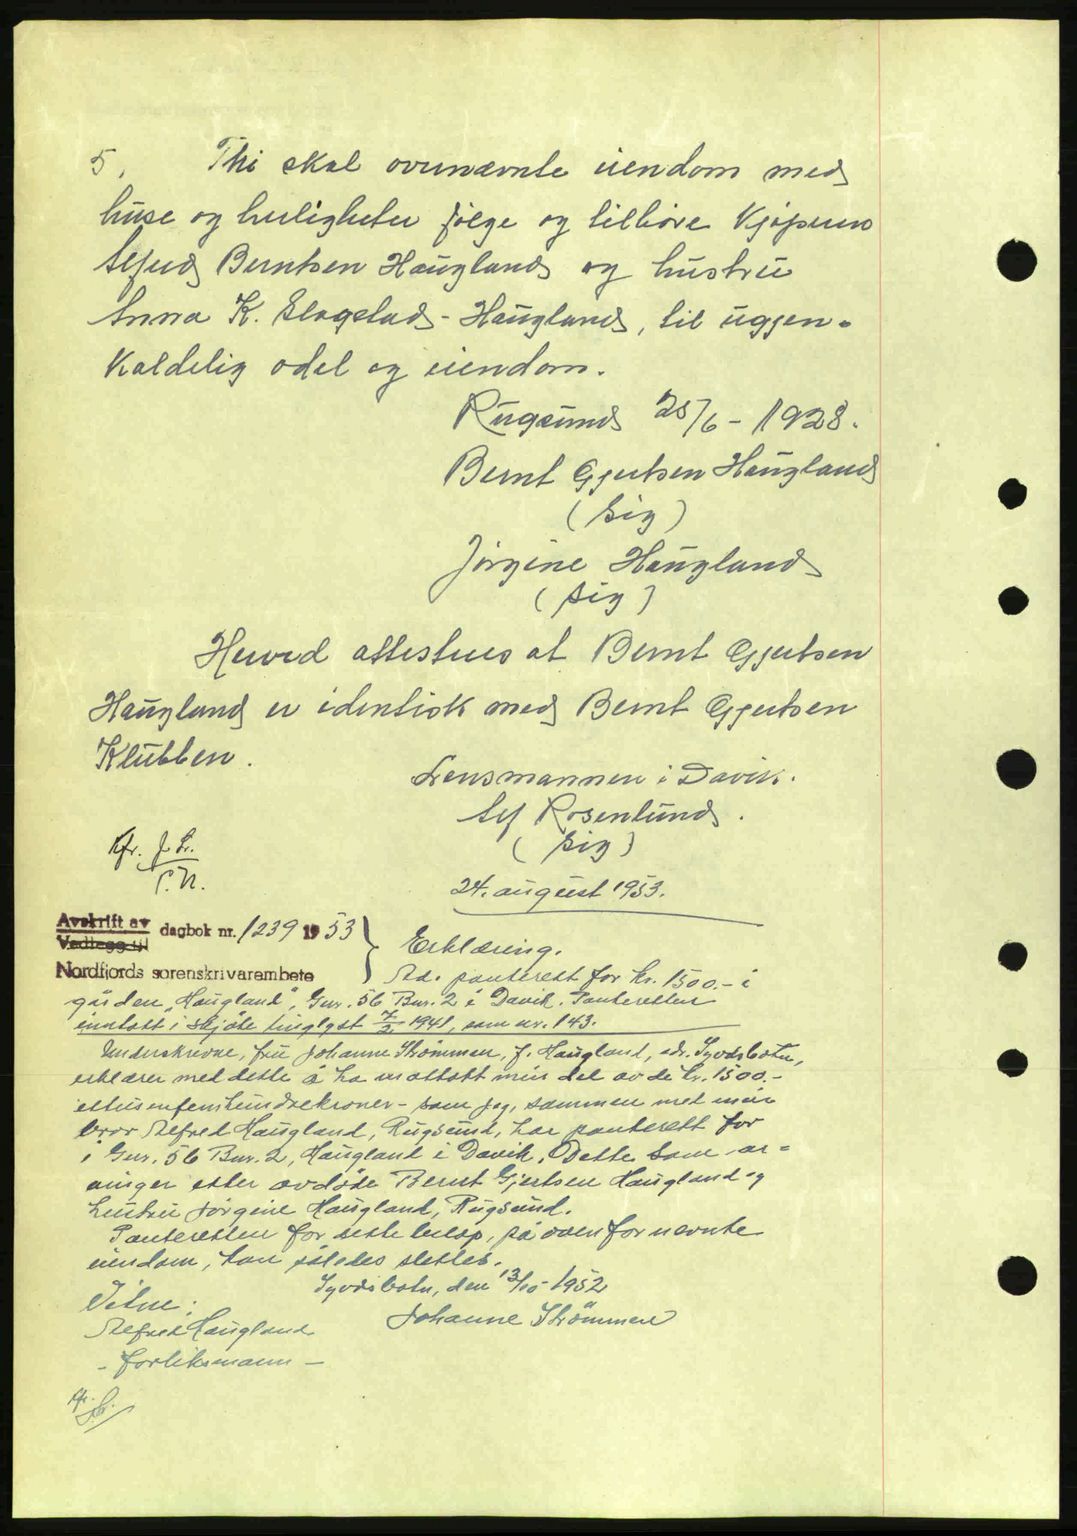 5. Thi skal ovennævnte eiendom med
huse og herligheter følge og tilhøre Kjøperen
Alfred Berntsen Haugland og hustru
Anna K. Elogelad - Haugland, til ugjen-
kaldelig odel og eiendom.
Rugsund 25/6 - 1928.
Bernt Gjertsen Haugland
(sig)
Jørgine Haugland
(sig)
Herved attesteres at Bernt Gjertsen
Haugland er identisk med Bernt Gjertsen
Klubben.
Lensmannen i Davik.
Alf Rosenlund.
(sig)
Kfr.
24. august 1953.
Avskrift av
Vedlegg til
dagbok nr. 1239 1953
Nordfjords sorenskrivarembete
Erklæring.
Ad. panterett for kr. 1500.- i
gården "Haugland", Gnr. 56 Bnr. 2 i Davik. Panteretten
inntatt i skjøte tinglyst 7/2 1941, som nr. 143.
Underskrevne, fru Johanne Strømmen, f. Haugland, adr. Syvdsbotn,
erklærer med dette å ha mottatt min del av de kr. 1500.-
ettusenfemhundrekroner - som jeg, sammen med min
bror Alfred Haugland, Rugsund, har panterett for
i Gnr. 56 Bnr. 2, Haugland i Davik. Dette som ar-
vinger etter avdøde Bernt Gjertsen Haugland og
hustru Jørgine Haugland, Rugsund.
Panteretten for dette beløp, på ovenfornevnte
eiendom, kan således slettes.
Syvdsbotn, den 13/10 - 1952
Vitne:
Johanne Strømmen
Alfred Haugland
- forliksmann -